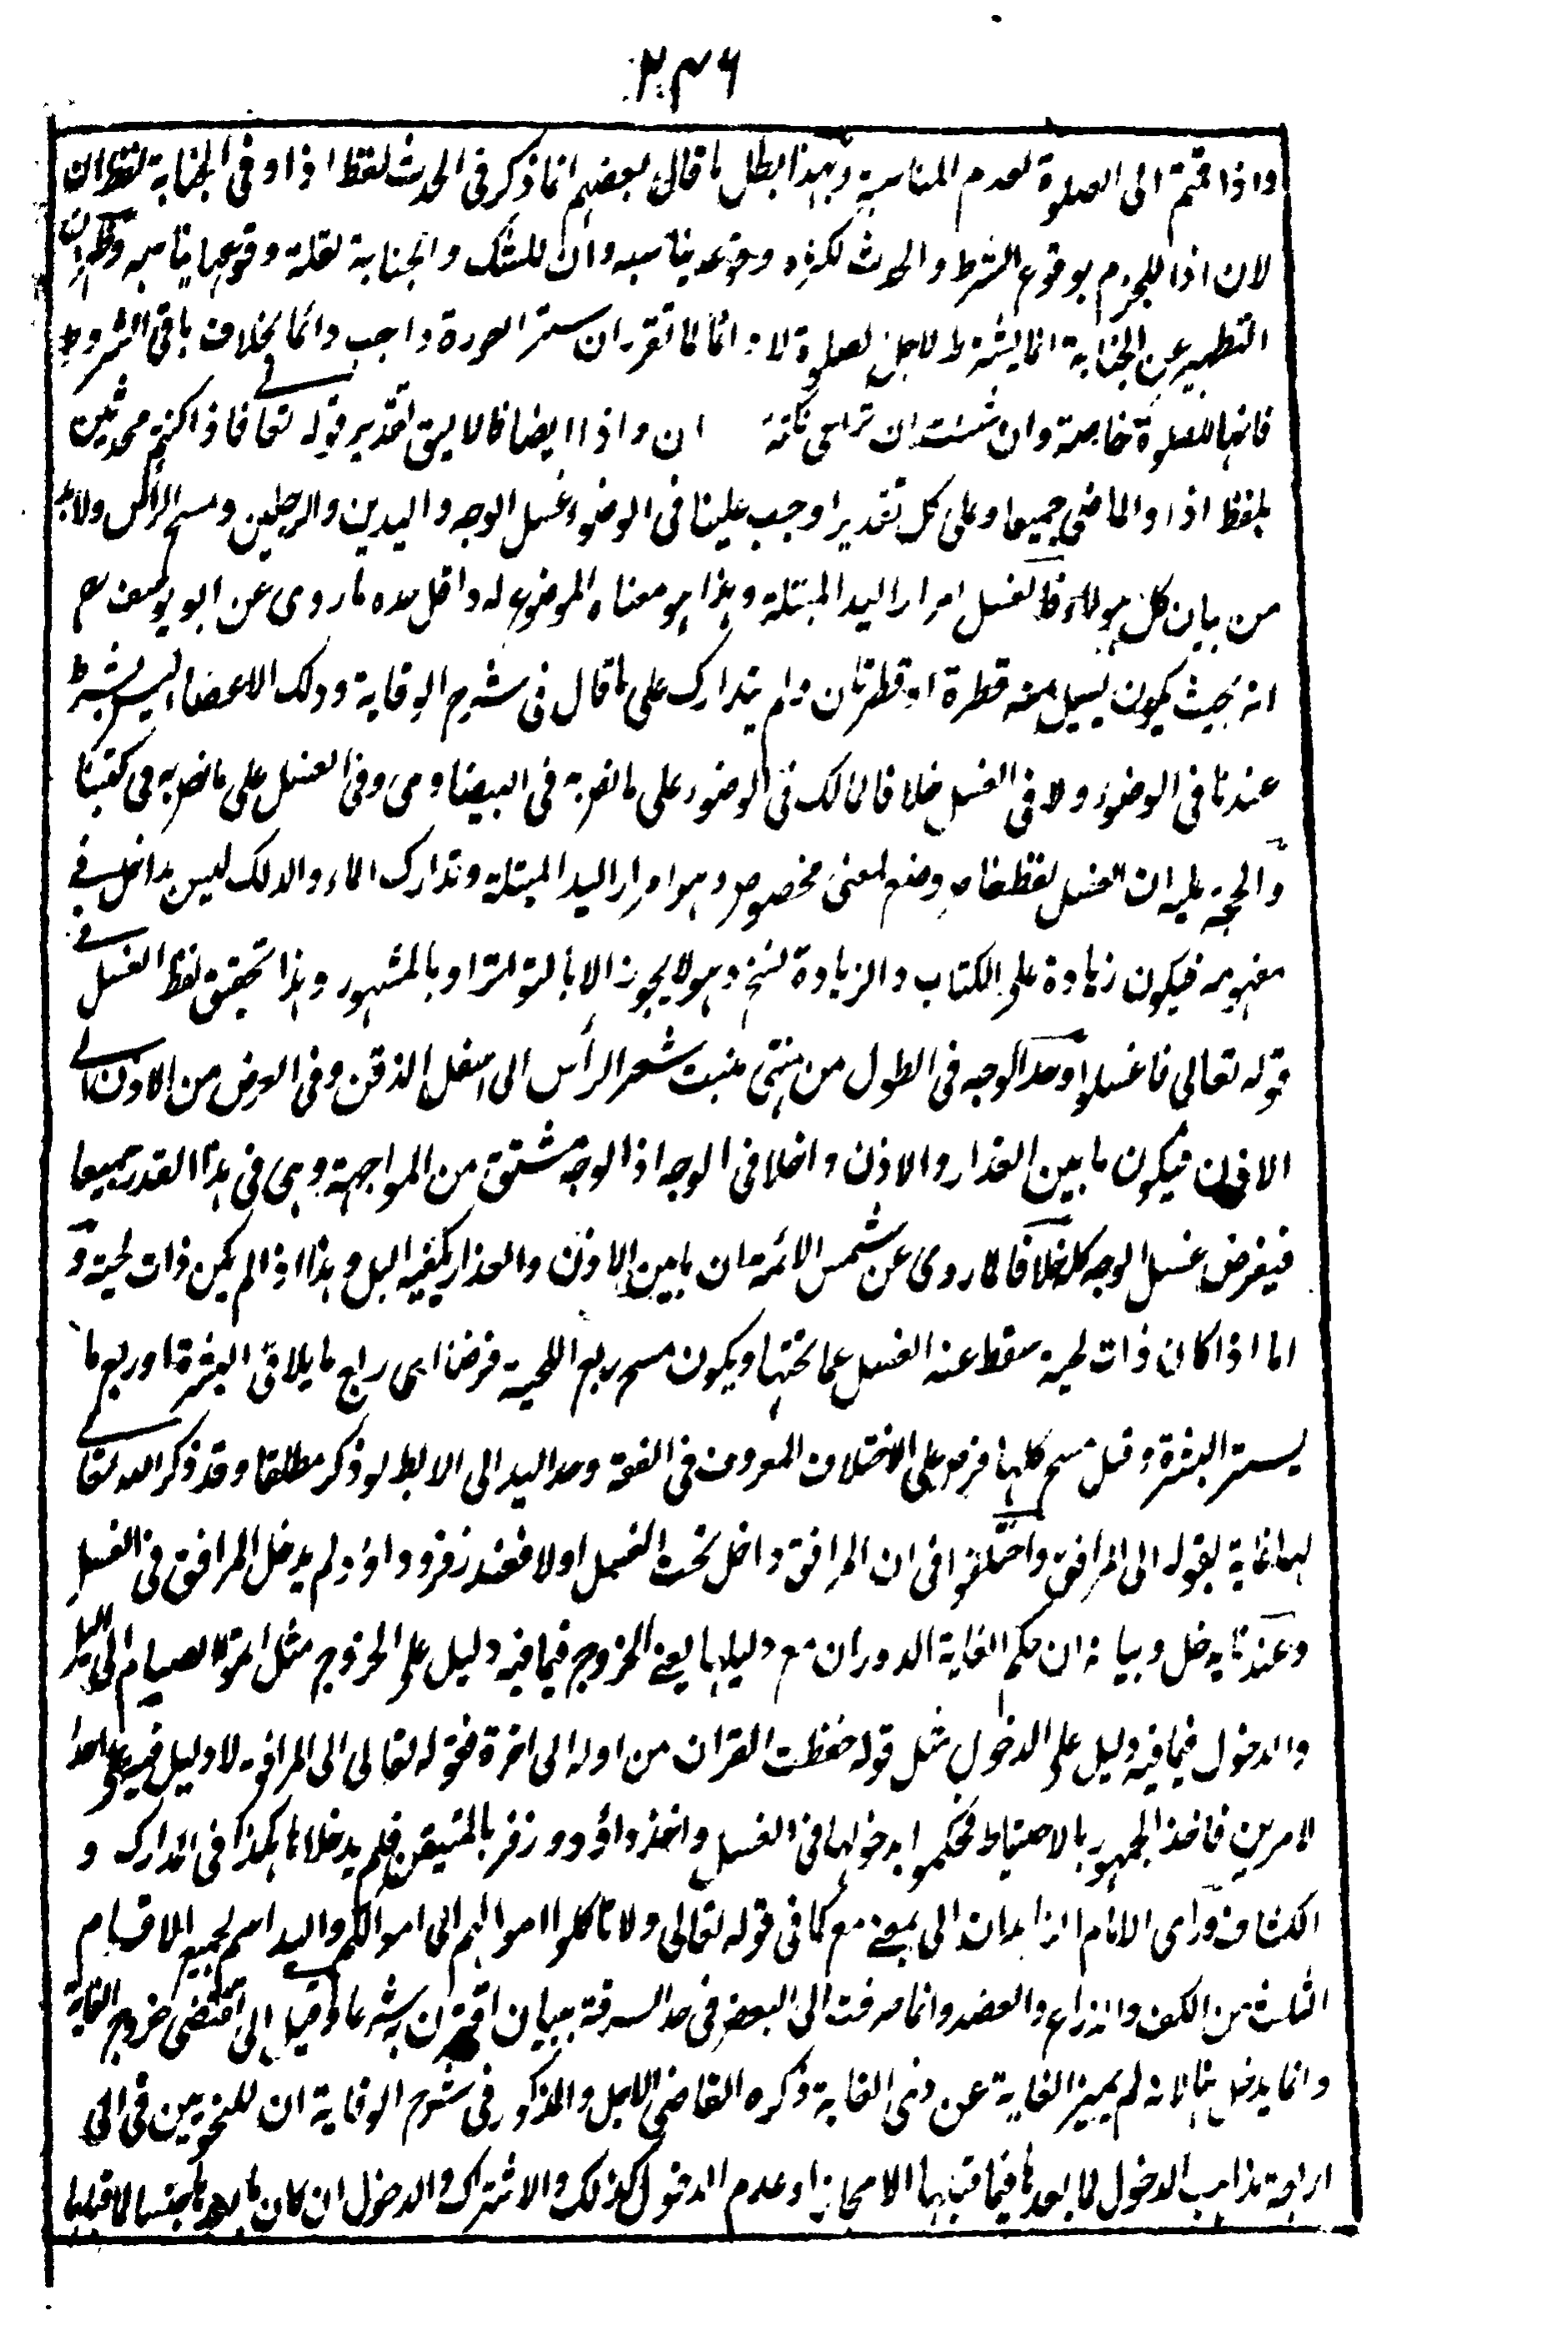 ٢٤٦
واذا قمتم الى الصلوة لعدم المناسبة وبهذا بطل ما قال بعضهم انما ذكر فى الحدث لفظ اذا وفى الجنابة لفظ ان
لان اذا للجزم بوقوع الشرط والحدث لكثرة وقوعه يناسبه وان للشك والجنابة لقلة وقوعها يناسبه وظهر ان
التطهير عن الجنابة انما يشترط لاجل الصلوة لا دائما لما تقرر ان ستر العورة واجب دائما بخلاف باقى الشروط
فانها للصلوة خاصة وان شئت ان تراعى نكتة ان واذا ايضا فالاليق تقدير قوله تعالى فاذا كنتم محدثين
بلفظ اذا والماضى جميعا وعلى كل تقدير اوجب علينا فى الوضوء غسل الوجه واليدين والرجلين ومسح الراس ولابد
من بيان كل هؤلاء فالغسل امرار اليد المبتلة وهذا هو معناه الموضوع له واقل حده ما روى عن ابو يوسف رح
انه بحيث يكون يسيل منه قطرة او قطرتان ولم يتدارك على ما قال فى شرح الوقاية ودلك الاعضاء ليس بشرط
عندنا فى الوضوء ولا فى الغسل خلافا لمالك فى الوضوء على ما نص به فى البيضاوى وفى الغسل على ما نص به فى كتبنا
والحجة عليه ان الغسل لفظ خاص وضع لمعنى مخصوص وهو امرار اليد المبتلة وتدارك الماء والدلك ليس بداخل فى
مفهومه فيكون زيادة على الكتاب والزيادة نسخ وهو لا يجوز الا بالتواتر او بالمشهور وهذا تحقيق لفظ الغسل فى
قوله تعالى فاغسلوا وحد الوجه فى الطول من منتهى منبت شعر الرأس الى اسفل الذقن وفى العرض من الاذن الى
الاذن فيكون ما بين العذار والاذن داخلا فى الوجه اذ الوجه مشتق من المواجهة وهى فى هذا القدر جميعا
فيفرض غسل الوجه كله خلافا لما روى عن شمس الائمة ان ما بين الاذن والعذار يكفيه البل وهذا اذا لم يكن ذات لحية و
اما اذا كان ذات لحية سقط عنه الغسل عما تحتها ويكون مسح ربع اللحية فرضا اى ربع ما يلاقى البشرة او ربع ما
يستر البشرة وقيل مسح كلها فرض على الاختلاف المعروف فى الفقه وحد اليد الى الابط لو ذكر مطلقا وقد ذكر الله تعالى
لها غاية بقوله الى المرافق واختلفوا فى ان المرافق داخل تحت الغسل اولا فعند زفر وداؤد لم يدخل المرافق فى الغسل
وعندنا يدخل وبيانه ان حكم الغاية الدوران مع دليلها يعنى الخروج فيما فيه دليل على الخروج مثل اتموا الصيام الى الليل
والدخول فيما فيه دليل على الدخول مثل قوله حفظت القران من اوله الى اخره فقوله تعالى الى المرافق لا دليل فيه على احد
الامرين فاخذ الجمهور بالاحتياط فحكموا بدخولها فى الغسل واخذ داؤد وزفر بالمتيقن فلم يدخلاها هكذا فى المدارك و
الكشاف وراى الامام الزاهد ان الى بمعنى مع كما فى قوله تعالى ولا تاكلوا اموالهم الى اموالكم واليد اسم لجميع الاقسام
الثلث من الكف والذراع والعضد وانما صرفت الى البعض فى حد السرقة ببيان اقترن به شرعا وقيل الى تقتضى خروج الغاية
وانما يدخل ههنا لانه لم يميز الغاية عن ذى الغاية ذكره القاضى الاجل والمذكور فى شرح الوقاية ان للنحويين فى الى
اربعة مذاهب الدخول لما بعدها فيما قبلها الا مجازا وعدم الدخول كذلك والاشتراك والدخول ان كان ما بعدها جنسا لما قبلها